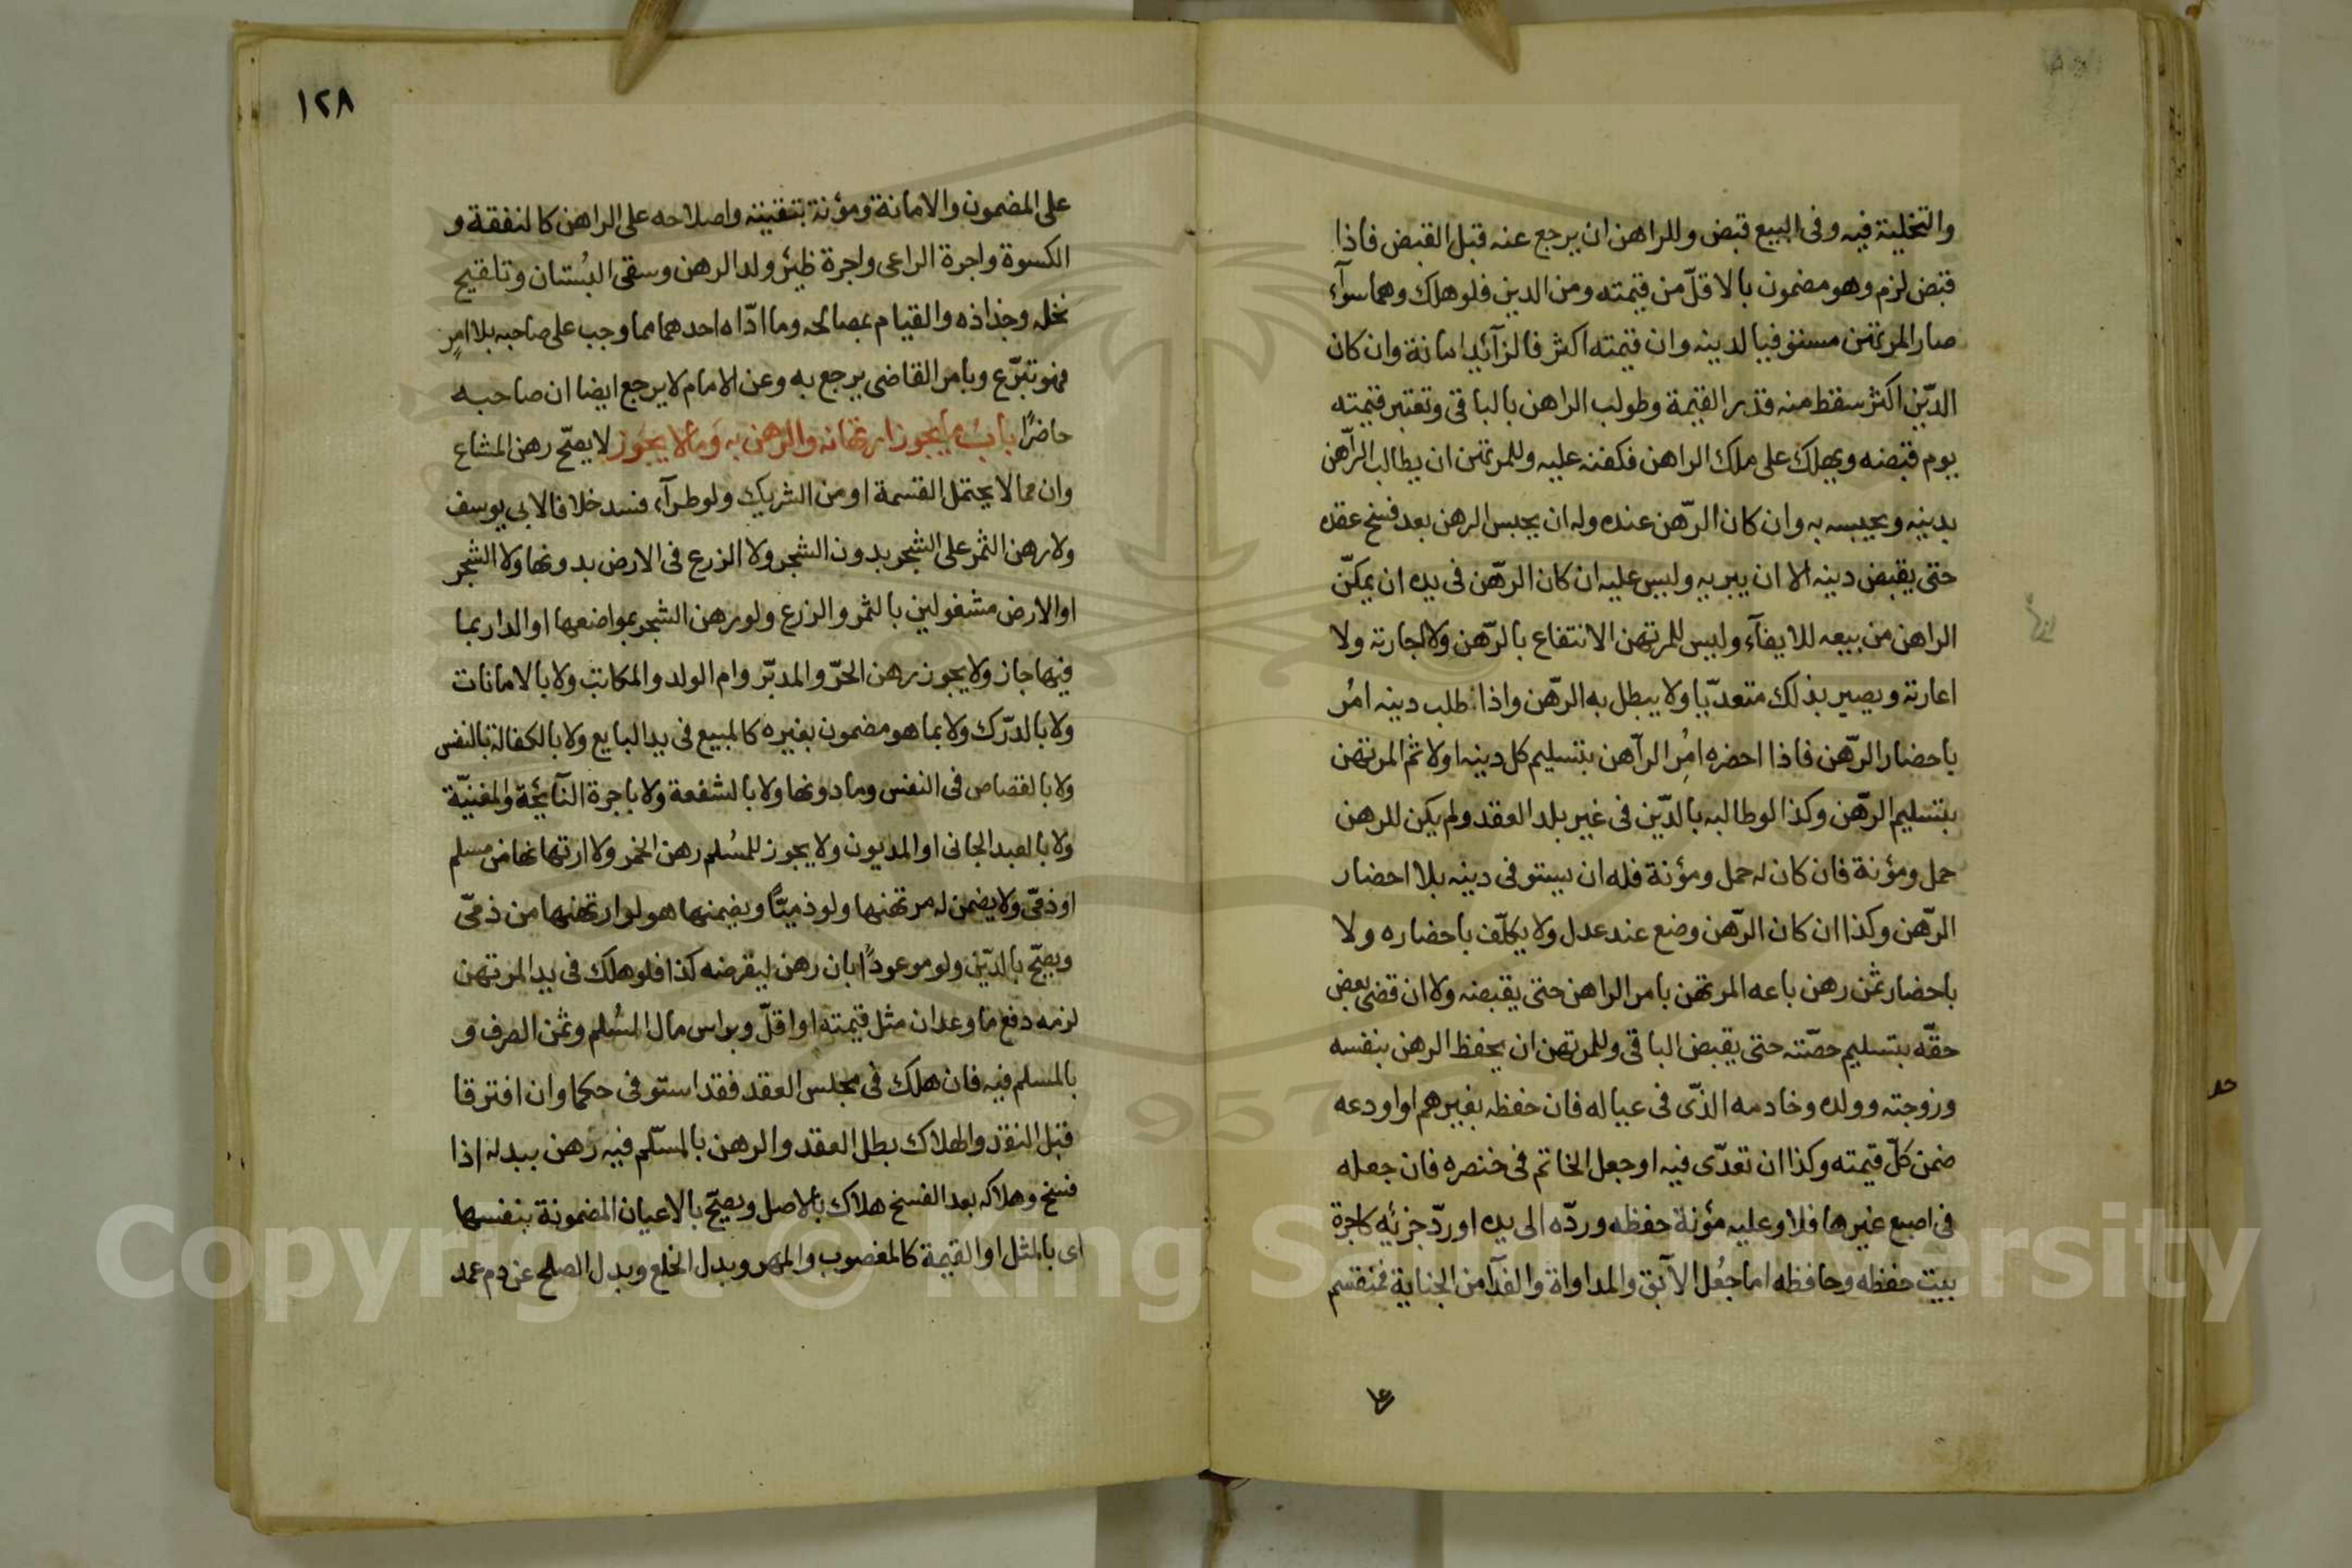 والتخلية فيه وفى البيع قبض وللراهن ان يرجع عنه قبل القبض فاذا
قبض لزم وهو مضمون بالاقلّ من قيمته ومن الدين فلو هلك وهما سوآء
صار المرتهن مستوفيا لدينه وان قيمته اكثر فالزآئد امانة وان كان
الدّين اكثر سقط منه قدر القيمة وطولب الراهن بالباقى وتعتبر قيمته
يوم قبضه ويهلك على ملك الراهن فكفنه عليه وللمرتهن ان يطالب الرّاهن
بدينه ويحبسه به وان كان الرّهن عنده وله ان يحبس الرهن بعد فسخ عقده
حتى يقبض دينه الا ان يبريه وليس عليه ان كان الرّهن فى يده ان يمكّن
الراهن من بيعه للايفآء وليس للمرتهن الانتفاع بالرّهن ولا اجارته ولا
اعارته ويصير بذلك متعدّيا ولا يبطل به الرّهن واذا طلب دينه امُر
باحضار الرّهن فاذا احضره امُِر الرآهن بتسليم كل دينه اولا ثم المرتهن
بتسليم الرّهن وكذا لو طالبه بالدّين فى غير بلد العقد ولم يكن للرهن
حمل ومؤنة فان كان له حمل ومؤنة فله ان يستوفى دينه بلا احضار
الرّهن وكذا ان كان الرّهن وضع عند عدل ولا يكلّف باحضاره ولا
باحضار ثمن رهن باعه المرتهن بامر الراهن حتى يقبضه ولا ان قضى بعض
حقّه بتسليم حصّته حتى يقبض الباقى وللمرتهن ان يحفظ الرهن بنفسه
وزوجته وولده وخادمه الذّى فى عياله فان حفظه بغيرهم او اودعه
ضمن كلّ قيمته وكذا ان تعدّى فيه او جعل الخاتم فى خنصره فان جعله
فى اصبع غيرها فلا وعليه مؤنة حفظه وردّه الى يده او ردّ جزئه كاجرة
بيت حفظه وحافظه اما جُعل الآبق والمداواة والفدآ من الجناية فمنقسم
١٢٨
على المضمون والامانة ومؤنة تبقيته واصلاحه على الراهن كالنفقة و
الكسوة واجرة الراعى واجرة ظئر ولد الرهن وسقى البُستان وتلقيح
نخله وجذاذه والقيام بمصالحه وما ادّاه احدهما مما وجب على صاحبه بلا امرٍ
فهو تبرّع وبامر القاضى يرجع به وعن الامام لا يرجع ايضا ان صاحبه
حاضرًا باب ما يجوز ارتهانه والرهن به وما لا يجوز لا يصحّ رهن المشاع
وان مما لا يحتمل القسمة او من الشريك ولو طرآء فسد خلافا لابى يوسف
ولا رهن الثمر على الشجر بدون الشجر ولا الزرع فى الارض بدونها ولا الشجر
او الارض مشغولين بالثمر والزرع ولو رهن الشجر بمواضعها او الدار بما
فيها جاز ولا يجوز رهن الحرّ والمدبّر وام الولد والمكاتب ولا بالامانات
ولا بالدّرك ولا بما هو مضمون بغيره كالمبيع فى يد البايع ولا بالكفالة بالنفس
ولا بالقصاص فى النفس وما دونها ولا بالشفعة ولا باجرة النآئحة والمغنيّة
ولا بالعبد الجانى او المديون ولا يجوز للمُسلم رهن الخمر ولا ارتهانها من مسلم
او ذمّى ولا يضمن له مرتهنها ولو ذميًّا ويضمنها هو لو ارتهنها من ذمّى
ويصحّ بالدّين ولو موعودًا بان رهن ليقرضه كذا فلو هلك فى يد المرتهن
لزمه دفع ما وعد ان مثل قيمته او اقلّ وبراس مال المُسلم وثمن الصرف و
بالمسلم فيه فان هلك فى مجلس العقد فقد استوفى حكما وان افترقا
قبل النقد والهلاك بطل العقد والرهن بالمسلّم فيه رهن ببدله اذا
فسخ وهلاكه بعد الفسخ هلاك بالاصل ويصحّ بالاعيان المضمونة بنفسها
اى بالمثل او القيمة كالمغصوب والمهر وبدل الخلع وبدل الصلح عن دم عمد
Copyright © King Saud University
1957